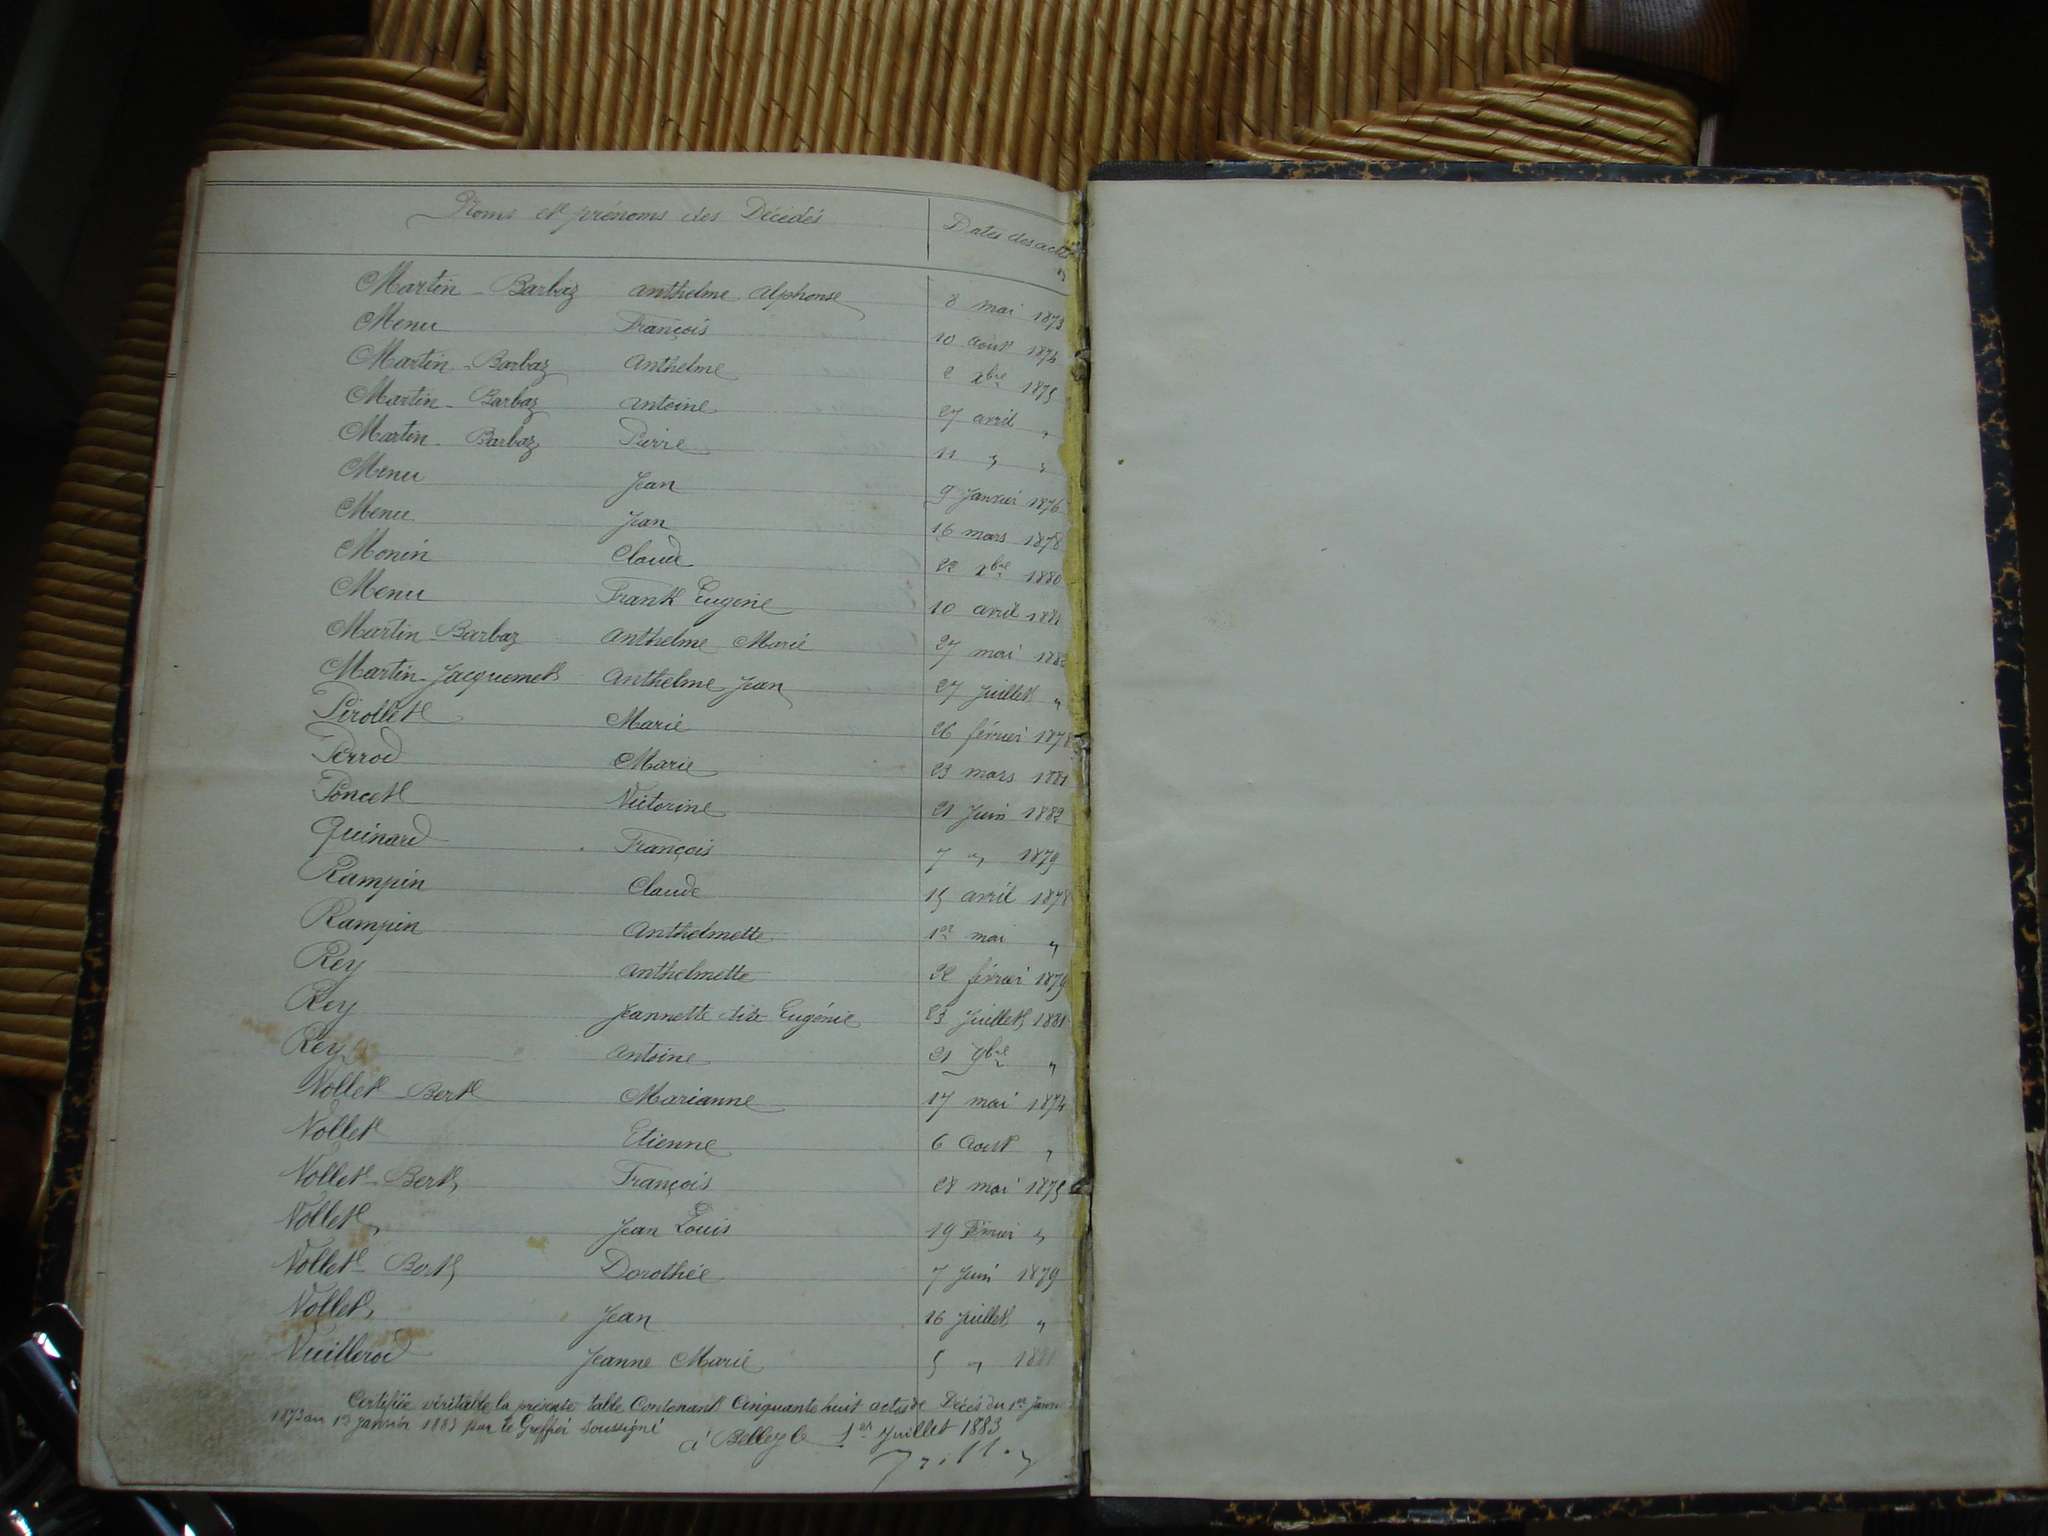 Noms et prénoms des Décédés Dates des actes
Martin-Barbaz Anthelme Alphonse 8 mai 1873
Menu François 10 Août 1874
Martin-Barbaz Anthelme 2 Xbre 1875
Martin-Barbaz Antoine 27 avril "
Martin-Barbaz Pierre 11 " "
Menu Jean 9 Janvier 1876
Menu Jean 16 mars 1878
Monin Claude 22 Xbre 1880
Menu Frank Eugène 10 avril 1881
Martin-Barbaz Anthelme Marie 27 mai 1882
Martin-Jacquemet Anthelme Jean 27 Juillet "
Pirollet Marie 26 février 1878
Perrod Marie 23 mars 1881
Poncet Victorine 21 Juin 1882
Quinard François 7 " 1879
Rampin Claude 15 avril 1878
Rampin Anthelmette 1er mai "
Rey Anthelmette 22 février 1879
Rey Jeannette dite Eugénie 23 Juillet 1881
Rey Antoine 21 9bre "
Vollet-Bert Marianne 17 mai 1874
Vollet Etienne 6 Août "
Vollet-Bert François 28 mai 1875
Vollet Jean Louis 19 Février "
Vollet-Bert Dorothée 7 Juin 1879
Vollet Jean 16 Juillet "
Vuillerod Jeanne Marie 5 "
Certifiée véritable la présente table Contenant Cinquante huit actes de Décès du 1er Janvier
1873 au 1er Janvier 1883 par le Greffier soussigné
à Belley le 1er Juillet 1883